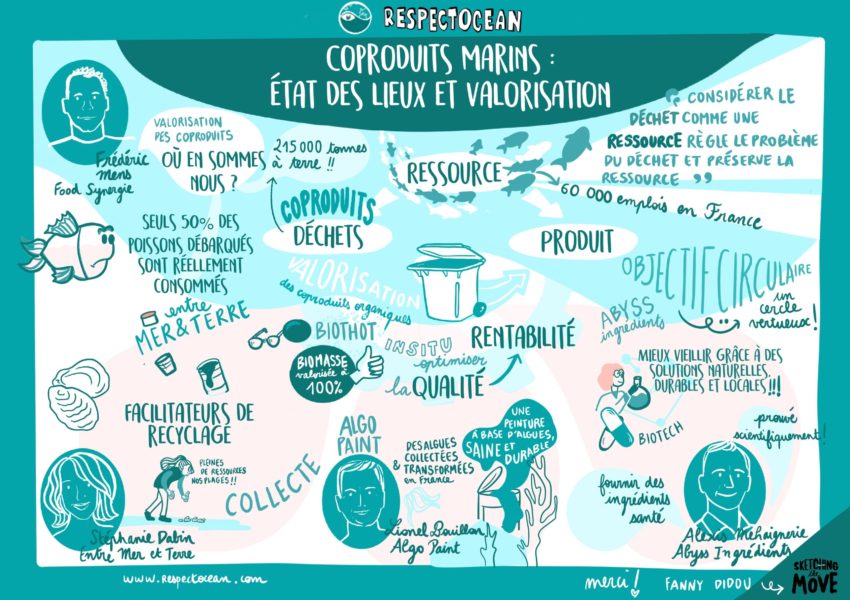 RESPECTOCEAN
COPRODUITS MARINS :
ÉTAT DES LIEUX ET VALORISATION
Frédéric
Mens
Food Synergie
VALORISATION
DES COPRODUITS
OÙ EN SOMMES
NOUS ?
215 000 tonnes
à terre !!
RESSOURCE
60 000 emplois en France
" CONSIDÉRER LE
DÉCHET COMME UNE
RESSOURCE RÈGLE LE PROBLÈME
DU DÉCHET ET PRÉSERVE LA
RESSOURCE "
COPRODUITS
DÉCHETS
PRODUIT
SEULS 50% DES
POISSONS DÉBARQUÉS
SONT RÉELLEMENT
CONSOMMÉS
VALORISATION
des coproduits organiques
OBJECTIF CIRCULAIRE
un
cercle
vertueux !
entre
MER & TERRE
BIOTHOT
BIOMASSE
valorisée à
100%
INSITU
optimiser
la QUALITÉ
RENTABILITÉ
ABYSS
ingrédients
MIEUX VIEILLIR GRÂCE À DES
SOLUTIONS NATURELLES,
DURABLES ET LOCALES !!!
BIOTECH
prouvé
scientifiquement !
FACILITATEURS DE
RECYCLAGE
PLEINES
DE RESSOURCES
NOS PLAGES !!
COLLECTE
ALGO
PAINT
DES ALGUES
COLLECTÉES
& TRANSFORMÉES
en France
UNE
PEINTURE
À BASE D'ALGUES,
SAINE ET
DURABLE
fournir des
ingrédients
santé
Stéphanie Dabin
Entre Mer et Terre
Lionel Bouillon
Algo Paint
Alexis Mehaignerie
Abyss Ingrédients
www.respectocean.com
merci !
FANNY DIDOU
SKETCHING
the
MOVE